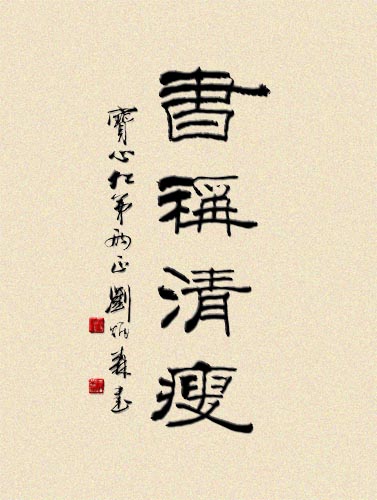 書稱清瘦
寶心仁弟兩正劉炳森書